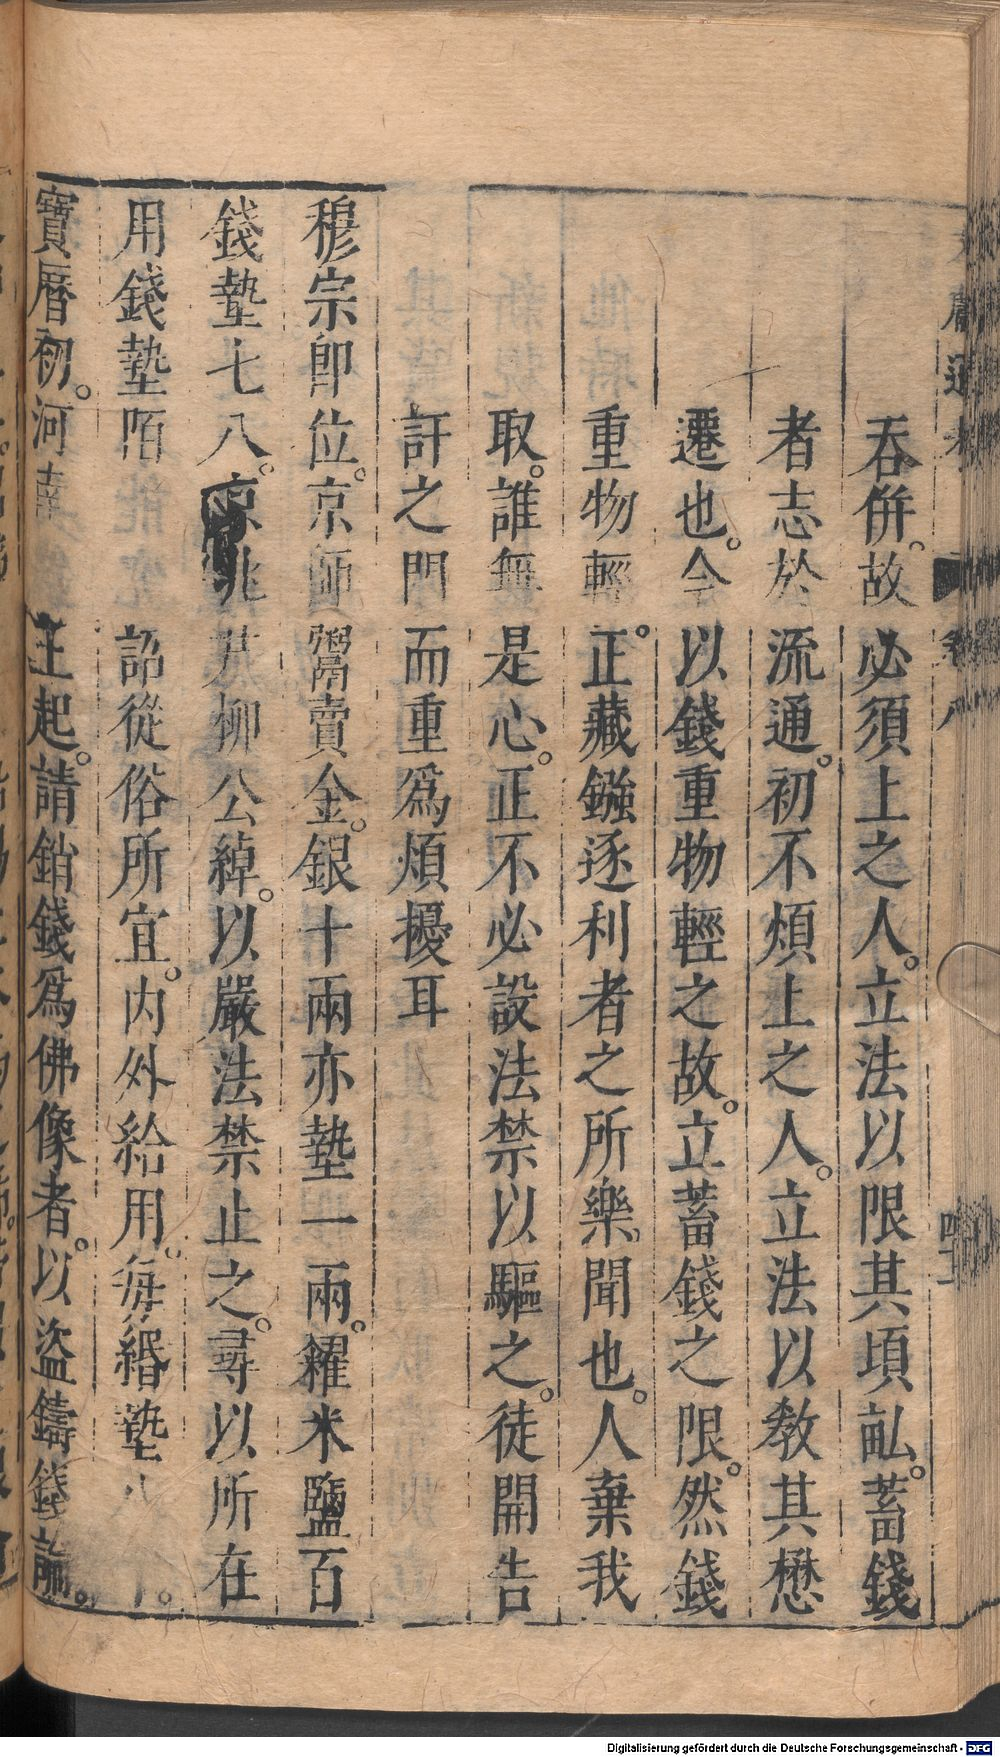 吞併。故必須上之人。立法以限其頃畆。蓄錢
者志於流通。初不煩上之人。立法以教其懋
遷也。今以錢重物輕之故。立蓄錢之限。然錢
重物輕。正藏鏹逐利者之所樂聞也。人棄我
取。誰無是心。正不必設法禁以驅之。徒開告
訐之門而重爲煩擾耳
穆宗卽位。京師鬻賣金。銀十兩亦墊一兩。糴米鹽百
錢墊七八。京兆尹柳公綽。以嚴法禁止之。尋以所在
用錢墊陌詔從俗所宜。內外給用。每緡墊八十。
寶曆初。河南王起。請銷錢爲佛像者。以盜鑄錢論。
通考 卷八 四十
Digitalisierung gefördert durch die Deutsche Forschungsgemeinschaft - DFG